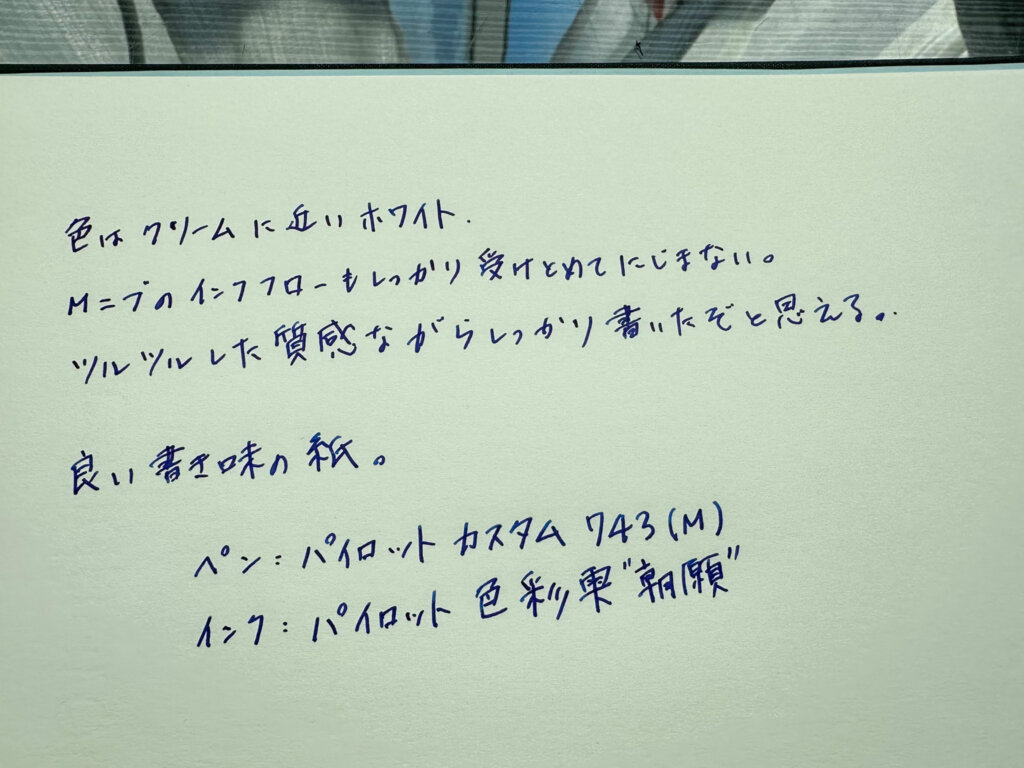 色はクリームに近いホワイト.
Mニブのインクフローもしっかり受けとめてにじまない。
ツルツルした質感ながらしっかり書いたぞと思える。
良い書き味の紙。
ペン:パイロット カスタム 743(M)
インク:パイロット 色彩雫"朝顔"